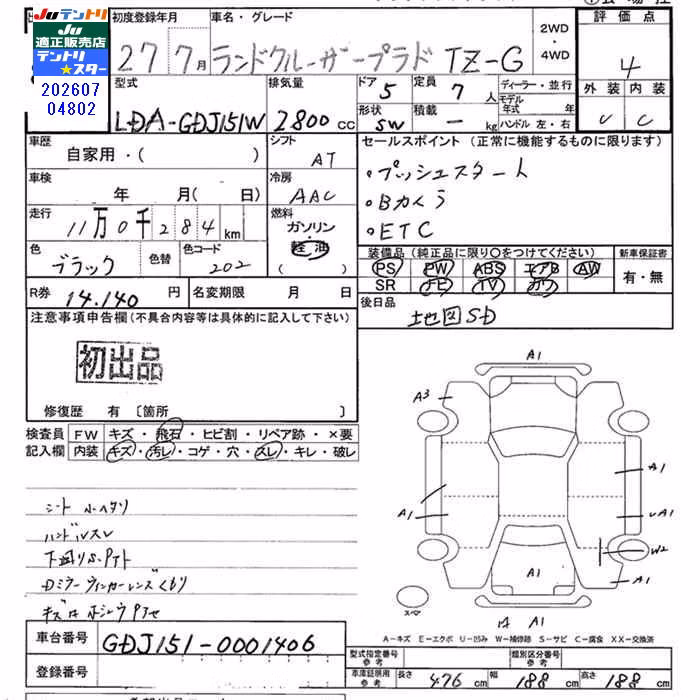 JUテントリ
JU
適正販売店
テントリ
★スター
202607
04802
初度登録年月
27 7月
車名・グレード
ランドクルーザープラド TZ-G
2WD
・
4WD
評価点
4
外装 内装
C
型式
LDA-GDJ151W
排気量
2800cc
ドア 5
形状 SW
定員 7人
積載 ー kg
ディーラー・並行
モデル年式 年
ハンドル 左・右
車歴
自家用・( )
シフト
AT
セールスポイント (正常に機能するものに限ります)
・プッシュスタート
・Bカメラ
・ETC
車検
年 月( 日)
冷房
AAC
走行
11万0千284km
燃料
ガソリン
・
軽油
( )
色
ブラック
色替
色コード
202
装備品 (純正品に限り〇をつけてください)
PS PW ABS エアB AW
SR ナビ TV カワ
新車保証書
有・無
R券 14.140円
名変期限 月 日
後日品
地図SD
注意事項申告欄(不具合内容等は具体的に記入して下さい)
初出品
修復歴 有 〔箇所 〕
検査員記入欄
FW キズ・飛石・ヒビ割・リペア跡・×要
内装 キズ・汚レ・コゲ・穴・スレ・キレ・破レ
シート小ヘタリ
ハンドルスレ
下廻りS.Pアト
Dミラーウィンカーレンズくもり
A1
A3
A1
A1
A1
W2
A1
A1
A1
スペア
A−キズ E−エクボ U−凹み W−補修跡 S−サビ C−腐食 XX−交換済
車台番号 GDJ151-0001406
登録番号
型式指定番号 参考
類別区分番号 参考
車庫証明用 参考 長さ 476cm 幅 188cm 高さ 188cm